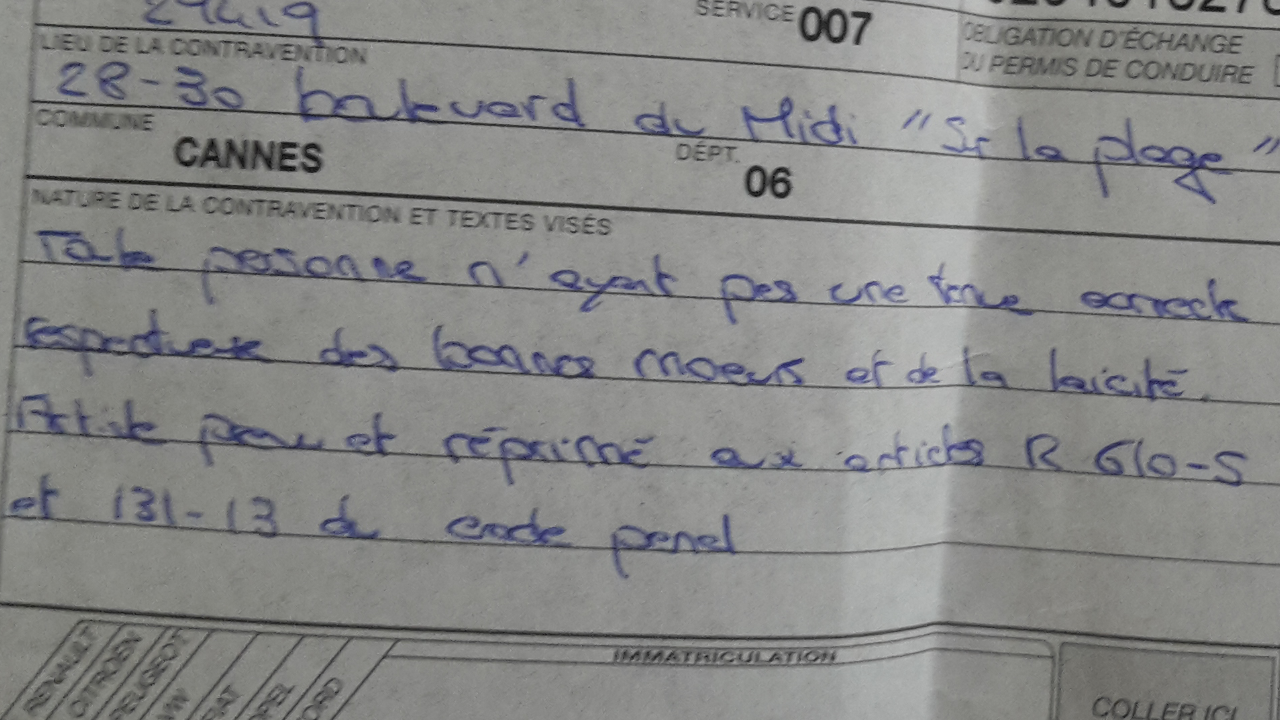 29419
SERVICE 007
OBLIGATION D'ÉCHANGE
DU PERMIS DE CONDUIRE
LIEU DE LA CONTRAVENTION
28-30 boulevard du Midi "Sur la plage"
COMMUNE
CANNES
DÉPT.
06
NATURE DE LA CONTRAVENTION ET TEXTES VISÉS
Toute personne n'ayant pas une tenue correcte
respectueuse des bonnes moeurs et de la laicité.
Article prévu et réprimé aux articles R 610-5
et 131-13 du code penal
RENAULT
CITROEN
PEUGEOT
IMMATRICULATION
COLLER ICI